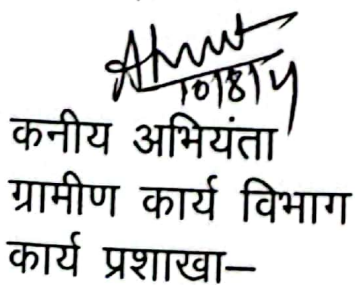 कनीय अभियंता
ग्रामीण कार्य विभाग
कार्य प्रशाखा—